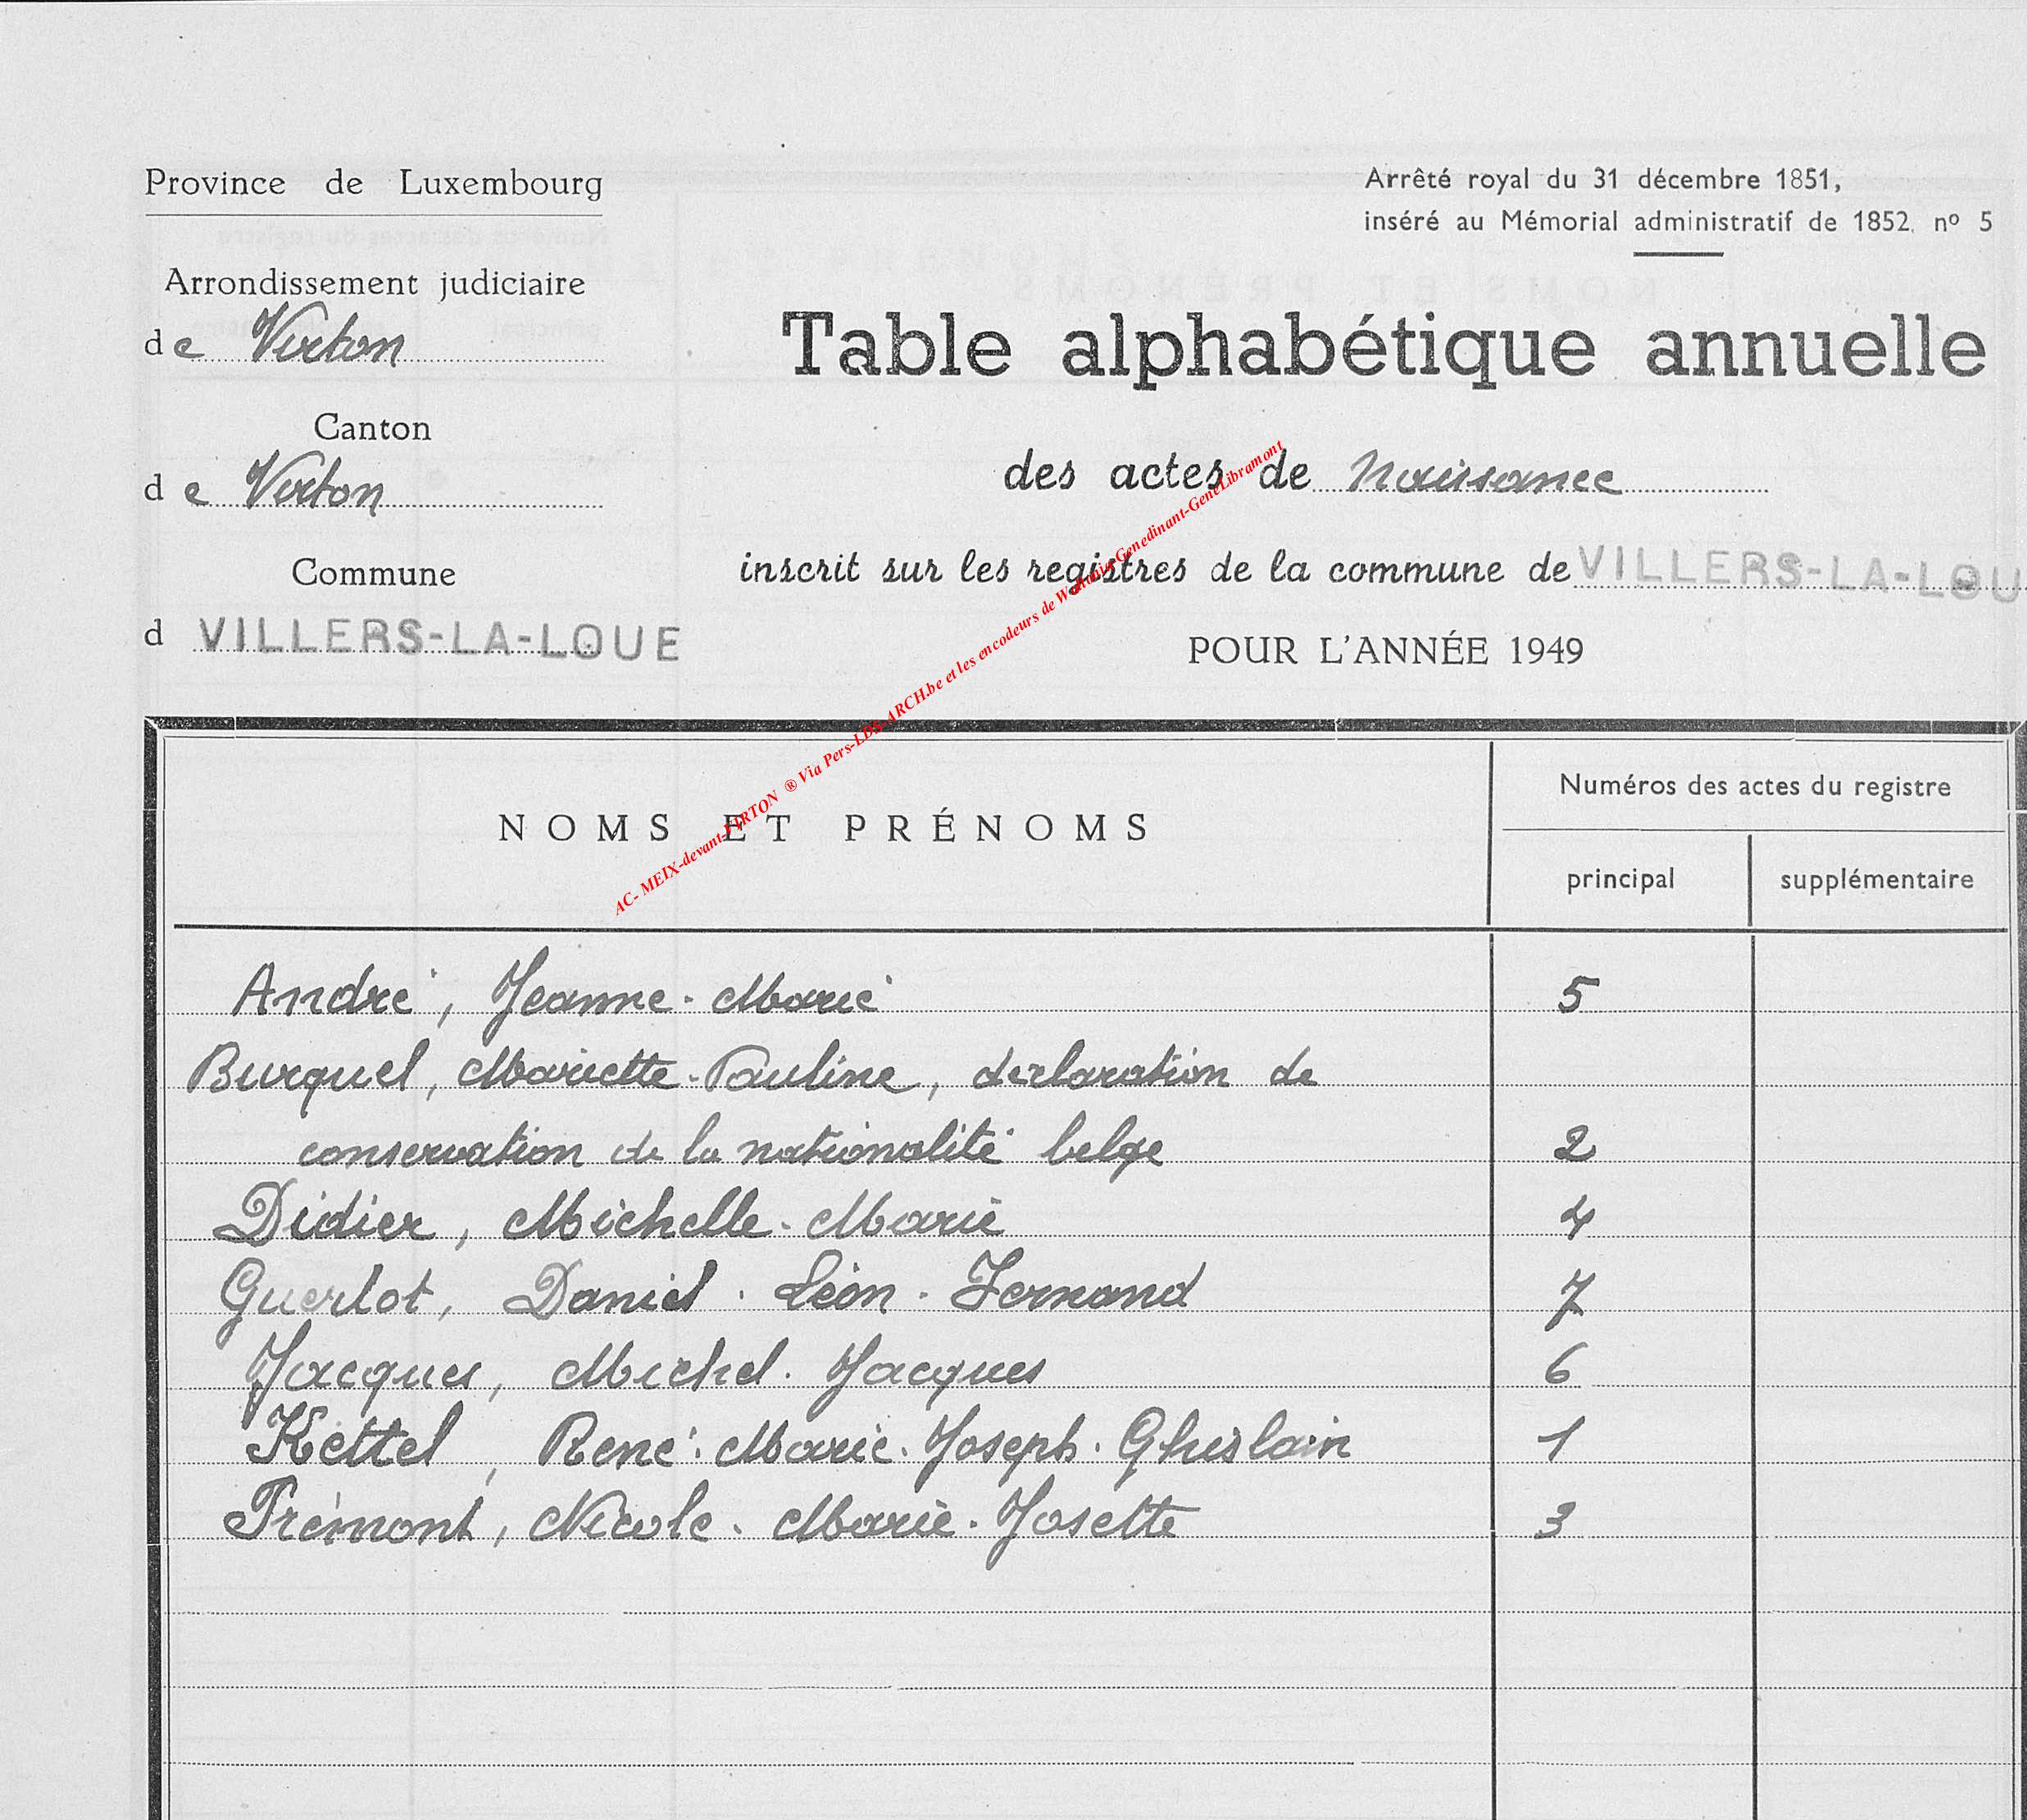 Province de Luxembourg
Arrêté royal du 31 décembre 1851,
inséré au Mémorial administratif de 1852, nº 5
Arrondissement judiciaire
de Virton
Table alphabétique annuelle
Canton
de Virton
des actes de Naissance
Commune
inscrit sur les registres de la commune de VILLERS-LA-LOU
d VILLERS-LA-LOUE
POUR L'ANNÉE 1949
AC- MEIX-devant-VIRTON ® Via Pers-LDS-ARCH.be et les encodeurs de Wallonia-Genedinant-GeneLibramont
NOMS ET PRÉNOMS
Numéros des actes du registre
principal supplémentaire
André, Jeanne-Marie 5
Burquel, Mariette-Pauline, déclaration de
conservation de la nationalité belge 2
Didier, Michelle-Marie 4
Guerlot, Daniel-Léon-Fernand 7
Jacques, Michel-Jacques 6
Kettel, René-Marie-Joseph-Ghislain 1
Prémont, Nicole-Marie-Josette 3